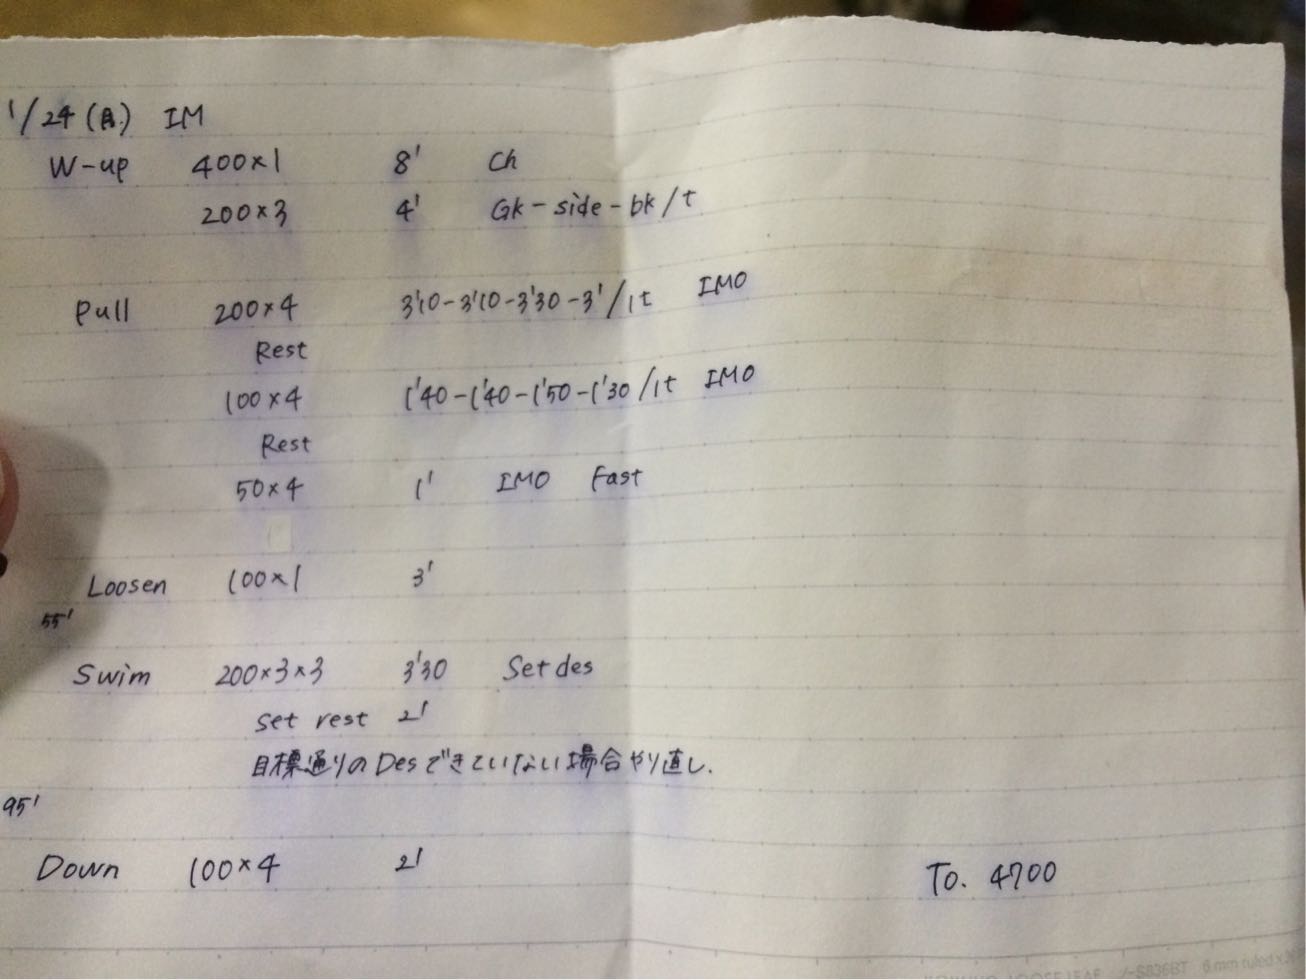 1/24(月) IM
W-up 400×1 8' Ch
200×3 4' Gk-side-bk/t
Pull 200×4 3'10-3'10-3'30-3'/1t IMO
Rest
100×4 1'40-1'40-1'50-1'30/1t IMO
Rest
50×4 1' IMO Fast
Loosen 100×1 3'
55'
Swim 200×3×3 3'30 Set des
set rest 2'
目標通りのDesできていない場合やり直し.
95'
Down 100×4 2'
To. 4700
-S836BT 6 mm ruled